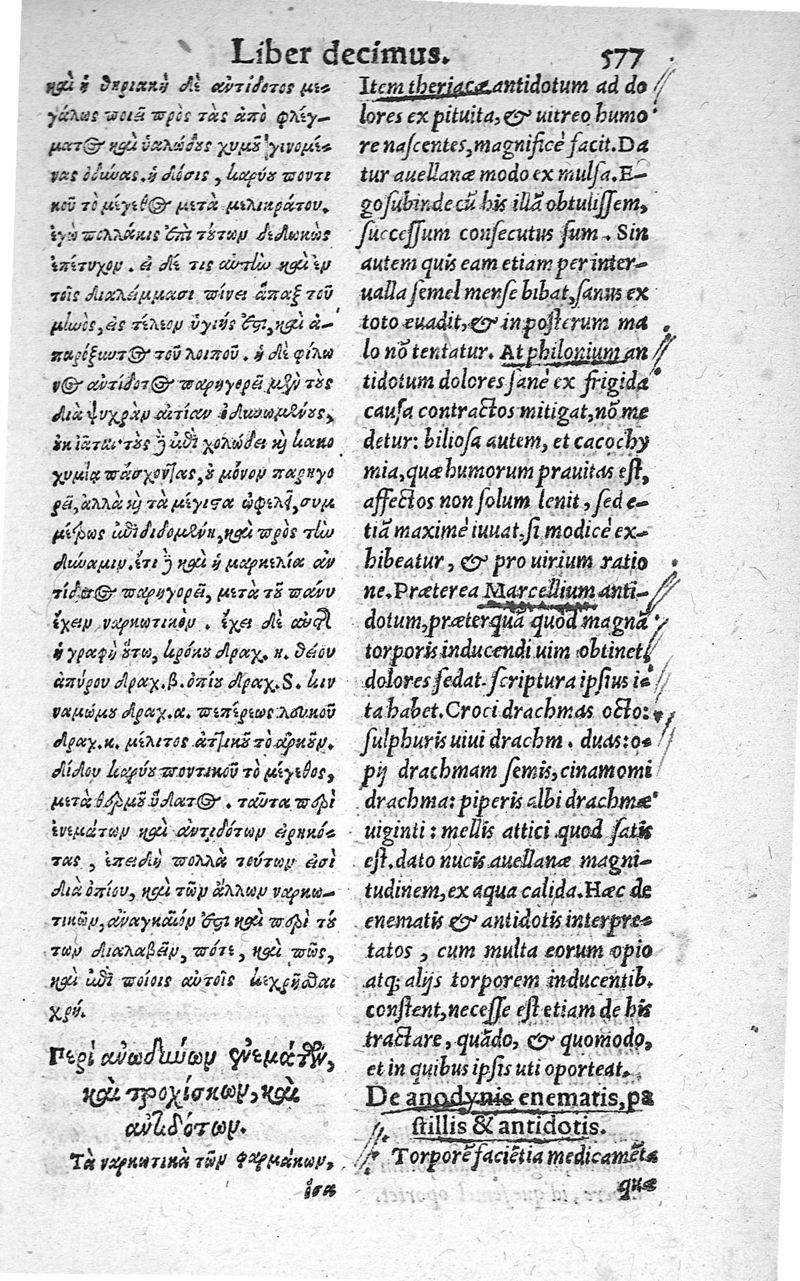 Liber decimus. 577
καὶ ἡ θηριακὴ δὲ ἀντίδοτος με-
γάλως ποιεῖ πρὸς τὰς ἀπὸ φλέγ-
ματος καὶ ὑαλώδους χυμοῦ γινομέ-
νας ὀδύνας. ἡ δόσις, καρύου ποντι
κοῦ τὸ μέγεθος μετὰ μελικράτου.
ἐγὼ πολλάκις ἐπὶ τούτων δεδωκὼς
ἐπέτυχον. εἰ δέ τις αὐτὴν καὶ ἐν
τοῖς διαλείμμασι πίνει ἅπαξ τοῦ
μηνὸς, εἰς τέλεον ὑγιής ἐστι, καὶ ἀ-
παρόξυντος τοῦ λοιποῦ. ἡ δὲ φίλω
νος ἀντίδοτος παρηγορεῖ μὲν τοὺς
διὰ ψυχρὰν αἰτίαν ὀδυνωμένους,
οὐκ ἰᾶται· τοὺς δὲ ἐπὶ χολώδει καὶ κακο
χυμίᾳ πάσχοντας, οὐ μόνον παρηγο
ρεῖ, ἀλλὰ καὶ τὰ μέγιστα ὠφελεῖ, συμ
μέτρως ἐπιδιδομένη, καὶ πρὸς τὴν
δύναμιν. ἔτι δὲ καὶ ἡ μαρκελία ἀν
τίδοτος παρηγορεῖ, μετὰ τοῦ πάνυ
ἔχειν ναρκωτικὸν. ἔχει δὲ αὐτῆς
ἡ γραφὴ οὕτω, κρόκου δραχ. κ. θείου
ἀπύρου δραχ. β. ὀπίου δραχ. S. κιν
ναμώμου δραχ. α. πεπέρεως λευκοῦ
δραχ. κ. μέλιτος ἀττικοῦ τὸ ἀρκοῦν.
δίδου καρύου ποντικοῦ τὸ μέγεθος,
μετὰ θερμοῦ ὕδατος. ταῦτα περὶ
ἐνεμάτων καὶ ἀντιδότων εἰρηκό-
τας, ἐπειδὴ πολλὰ τούτων εἰσὶ
διὰ ὀπίου, καὶ τῶν ἄλλων ναρκω-
τικῶν, ἀναγκαῖόν ἐστι καὶ περὶ τού
των διαλαβεῖν, πότε, καὶ πῶς,
καὶ ἐπὶ ποίοις αὐτοῖς κεχρῆσθαι
χρή.
Περὶ ἀνωδύνων ἐνεμάτων,
καὶ τροχίσκων, καὶ
ἀντιδότων.
Τὰ ναρκωτικὰ τῶν φαρμάκων,
ὅσα
Item theriacæ antidotum ad do
lores ex pituita, & uitreo humo
re nascentes, magnificè facit. Da
tur auellanæ modo ex mulsa. E-
go subinde cũ his illã obtulissem,
successum consecutus sum. Sin
autem quis eam etiam per inter-
ualla semel mense bibat, sanus ex
toto euadit, & in posterum ma
lo nõ tentatur. At philonium an
tidotum dolores sanè ex frigida
causa contractos mitigat, nõ me
detur: biliosa autem, et cacochy
mia, quæ humorum prauitas est,
affectos non solum lenit, sed e-
tiã maximè iuuat, si modicè ex-
hibeatur, & pro uirium ratio
ne. Præterea Marcellium anti-
dotum, præterquã quod magnã
torporis inducendi uim obtinet,
dolores sedat. scriptura ipsius i-
ta habet. Croci drachmas octo:
sulphuris uiui drachm. duas: o-
pij drachmam semis, cinamomi
drachma: piperis albi drachmæ
uiginti: mellis attici quod satis
est. dato nucis auellanæ magni-
tudinem, ex aqua calida. Hæc de
enematis & antidotis interpre-
tatos, cum multa eorum opio
atq; alijs torporem inducentib.
constent, necesse est etiam de his
tractare, quãdo, & quomodo,
et in quibus ipsis uti oporteat.
De anodynis enematis, pa
stillis & antidotis.
Torporẽ faciẽtia medicamẽta
quæ